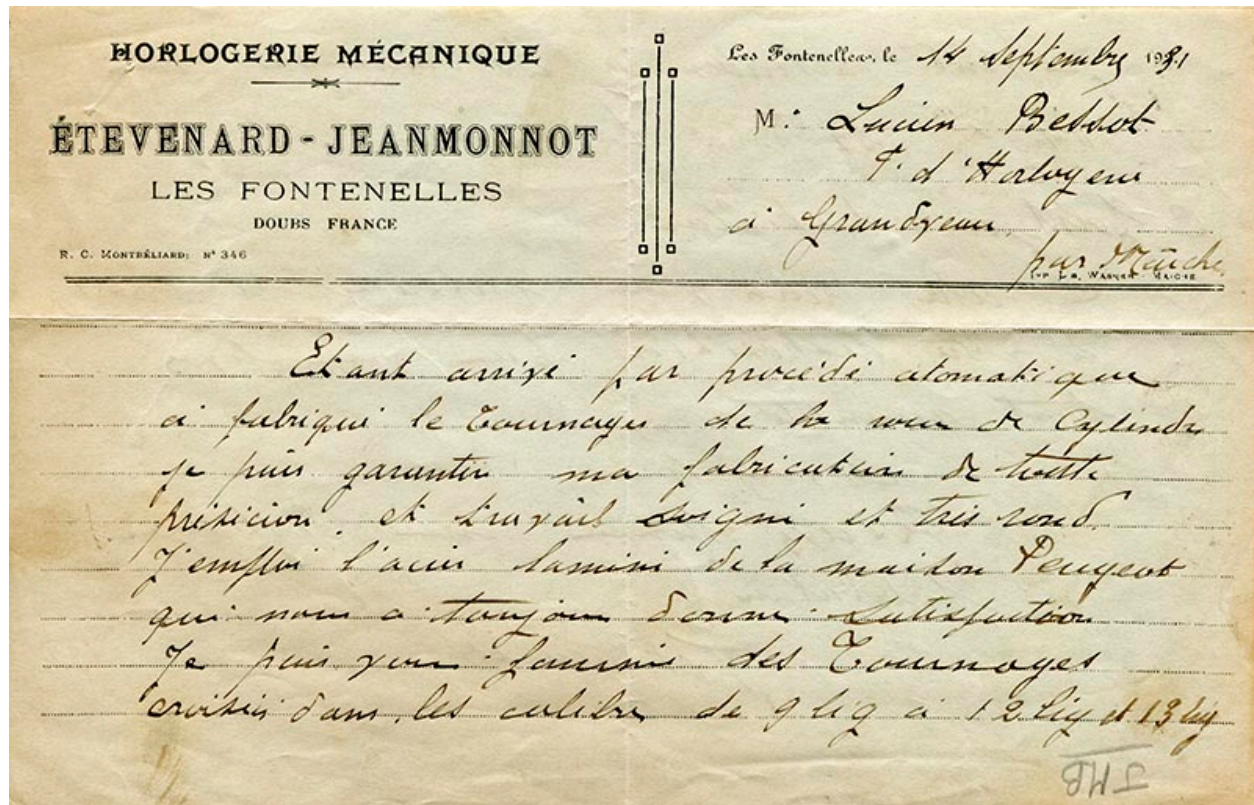 HORLOGERIE MÉCANIQUE
ÉTEVENARD - JEANMONNOT
LES FONTENELLES
DOUBS FRANCE
R. C. MONTBÉLIARD: N° 346
Les Fontenelles, le 14 Septembre 1931
M. Lucien Bessot
F. d'Horlogerie
à Grandyeau
par Maîche
TYP. L.B. WASNER - MAICHE
Etant arrivé par procédé atomatique
à fabriqué le Tournages de la roue de Cylindre
je puis garantir ma fabrication de toute
présicion et travail soigné et très rond.
J'emploi l'acier laminé de la maison Peugeot
qui nous a toujour donné satisfaction
Je puis vous fournir des Tournages
croisées dans les calibre de 9 lig à 12 lig et 13 lig
JMB